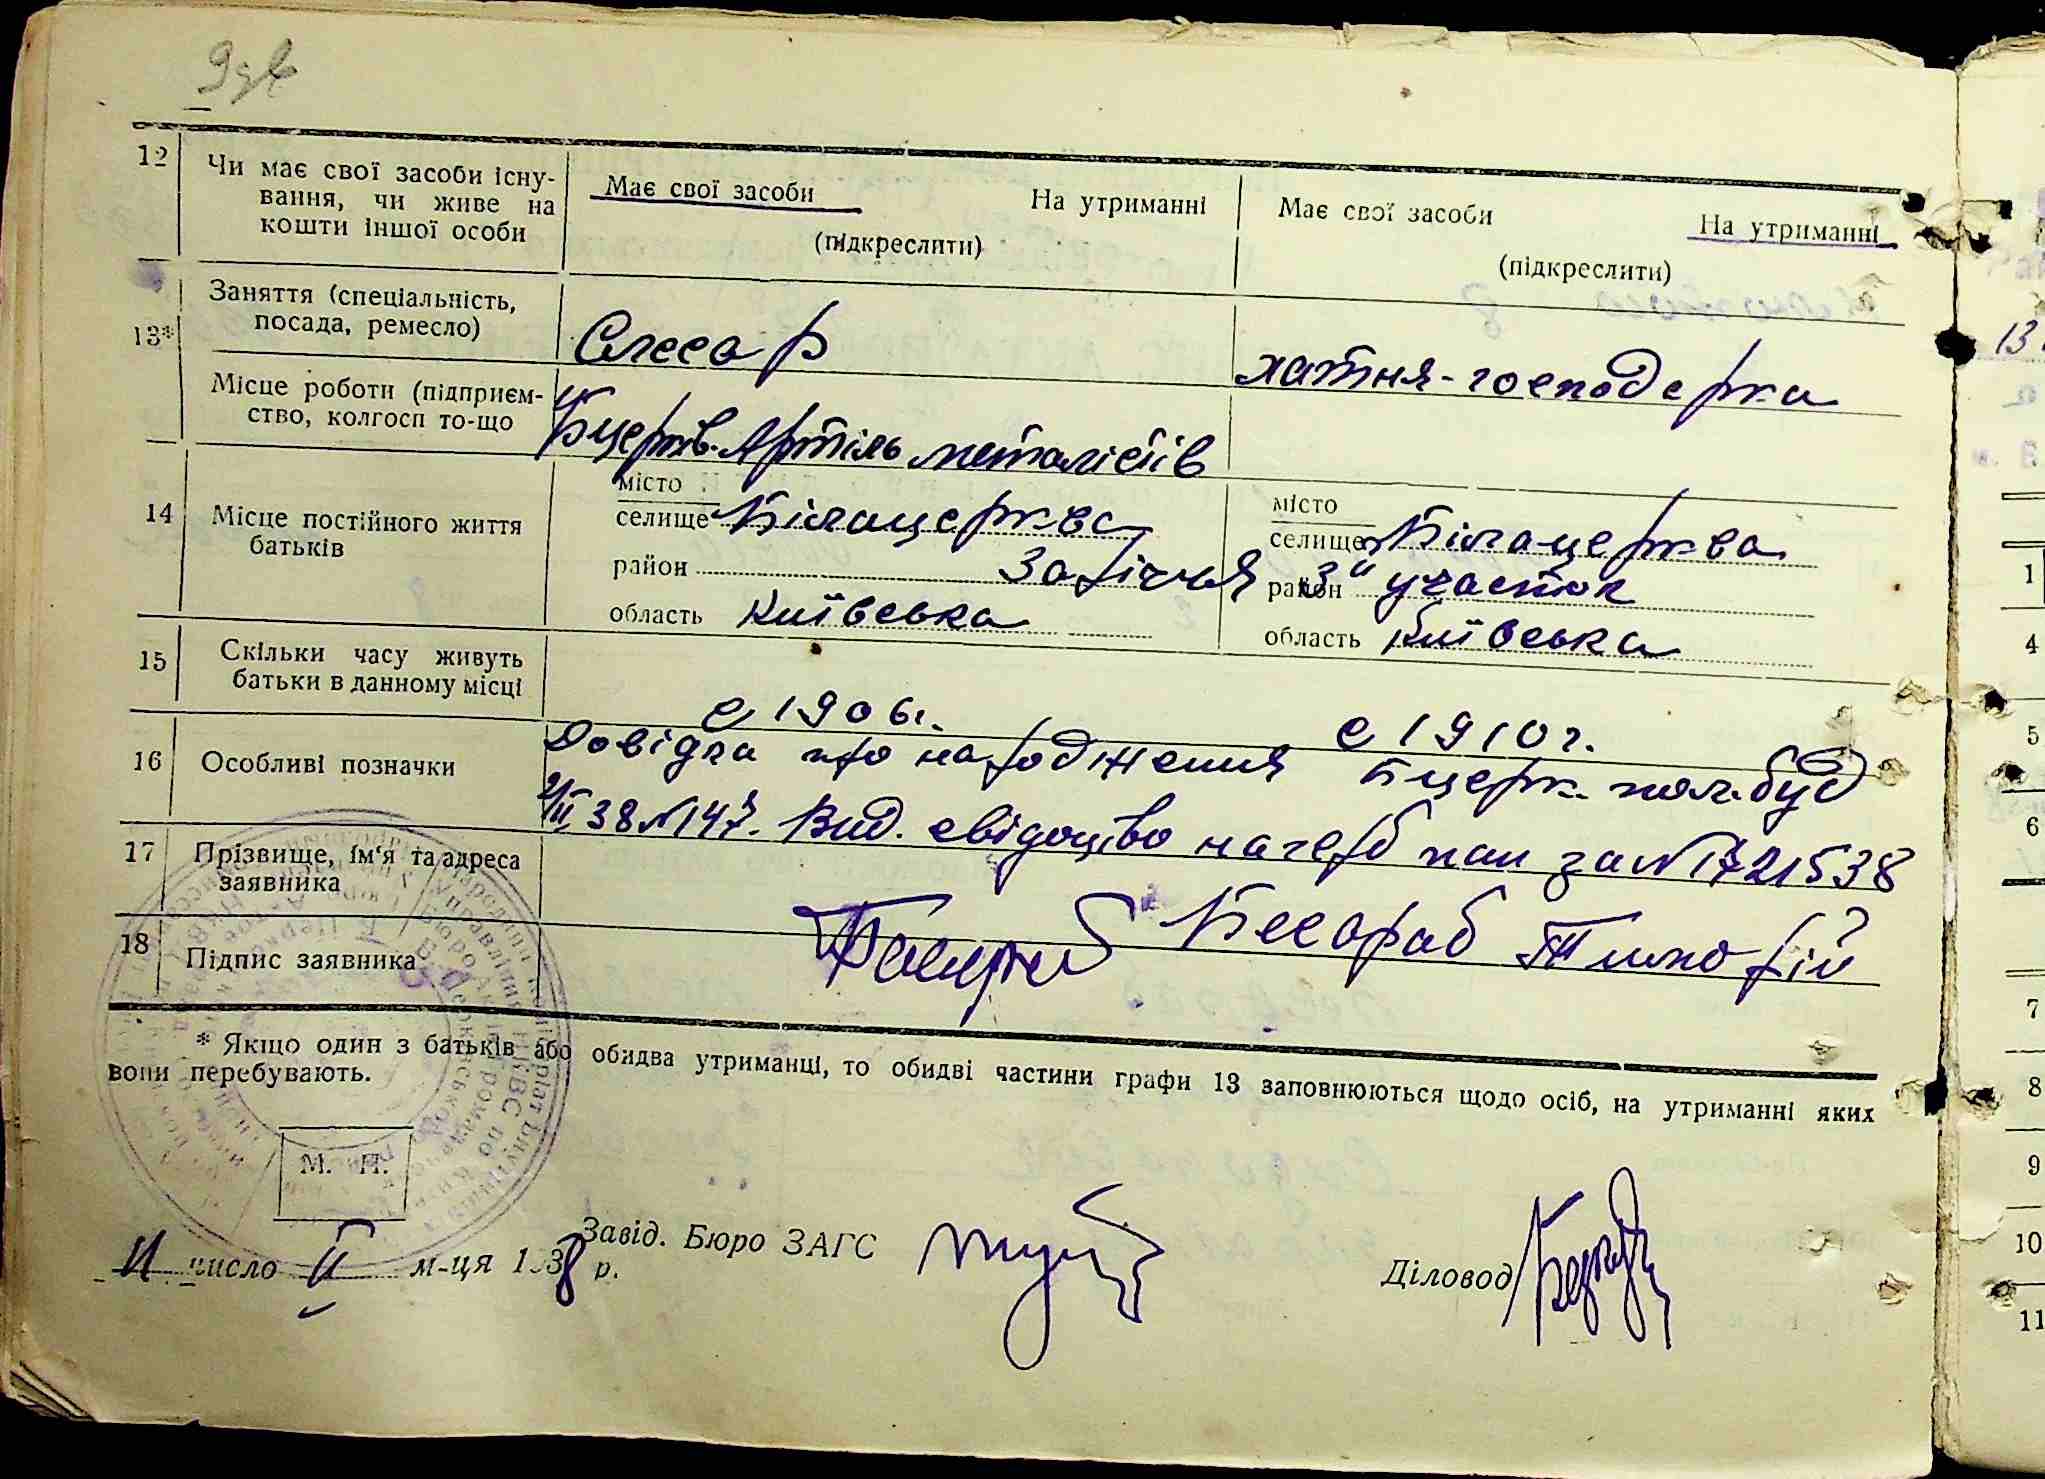 12 Чи має свої засоби існу-
вання, чи живе на
кошти іншої особи
Має свої засоби На утриманні
(підкреслити)
Має свої засоби На утриманні
(підкреслити)
13* Заняття (спеціальність,
посада, ремесло)
Слесар
хатня-господарка
Місце роботи (підприєм-
ство, колгосп то-що
Бцерків. Артіль металістів
14 Місце постійного життя
батьків
місто
селище Білацерква
район Заріччя
область Київська
місто
селище Білацерква
район 3й участок
область Київська
15 Скільки часу живуть
батьки в данному місці
с 1906г.
с 1910 г.
16 Особливі позначки
Довідка про народження Бцерк. пол. буд
38 №147. Вид. свідоцтво на герб пап за №1721538
17 Прізвище, ім'я та адреса
заявника
Бесараб Тимофій
18 Підпис заявника
* Якщо один з батьків або обидва утриманці, то обидві частини графи 13 заповнюються щодо осіб, на утриманні яких
вони перебувають.
М. П.
11 число II м-ця 1938 р.
Завід. Бюро ЗАГС
Діловод
13
1
4
5
6
7
8
9
10
11